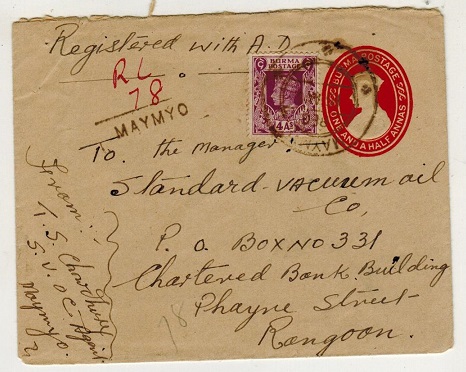 Registered with A.D.
R L
78
MAYMYO
BURMA
POSTAGE
4As
BURMA POSTAGE
ONE AND A HALF ANNAS
To, the Manager,
Standard-vacuum oil
Co,
P. O. BOX NO 331
Chartered Bank Building
Phayne Street
Rangoon.
From:
T. S. Chowdhury
S. V. O C. Agent
Maymyo.
78